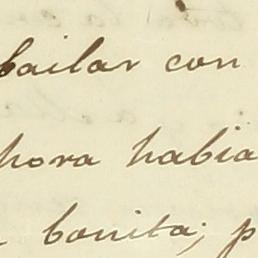 bailar con
hora habia
bonita; p